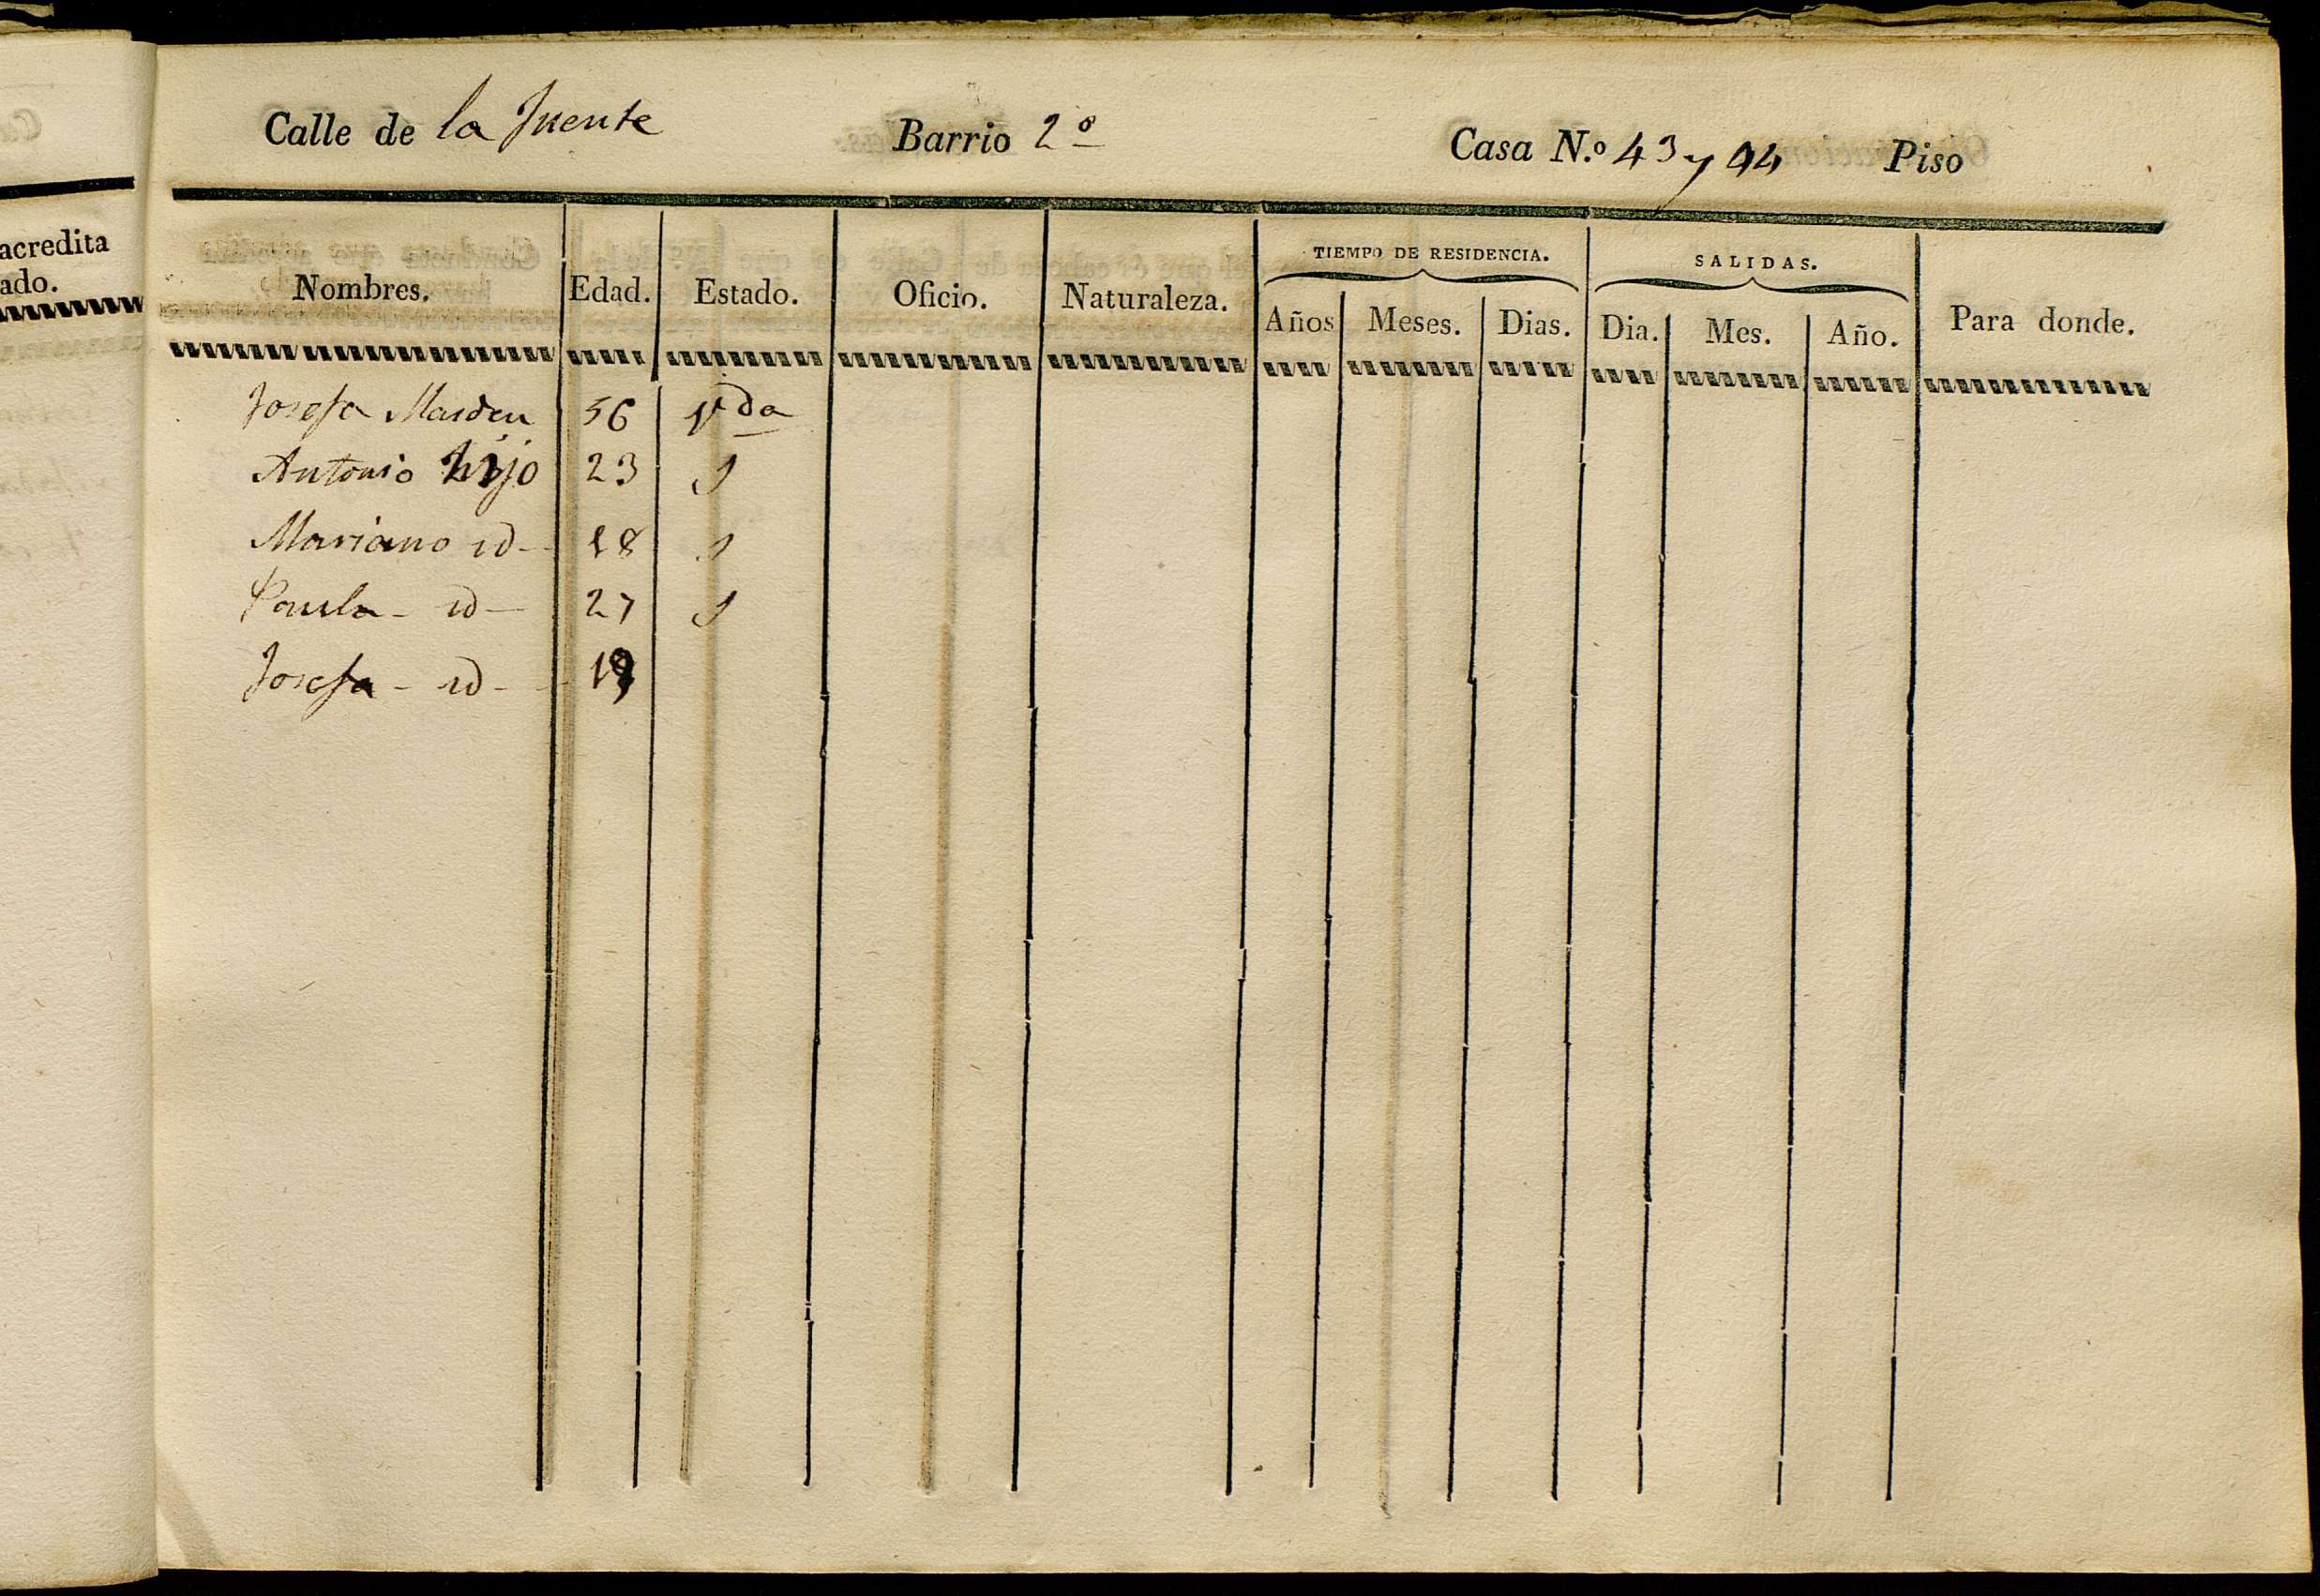 acredita
ado.
Calle de la Fuente Barrio 2º Casa N.º 43 y 44 Piso
Nombres. Edad. Estado. Oficio. Naturaleza. TIEMPO DE RESIDENCIA. SALIDAS. Para donde.
Años Meses. Dias. Dia. Mes. Año.
Josefa Masdeu 56 Vda
Antonio hijo 23 S
Mariano id 18 S
Paula - id 27 S
Josefa - id - 19